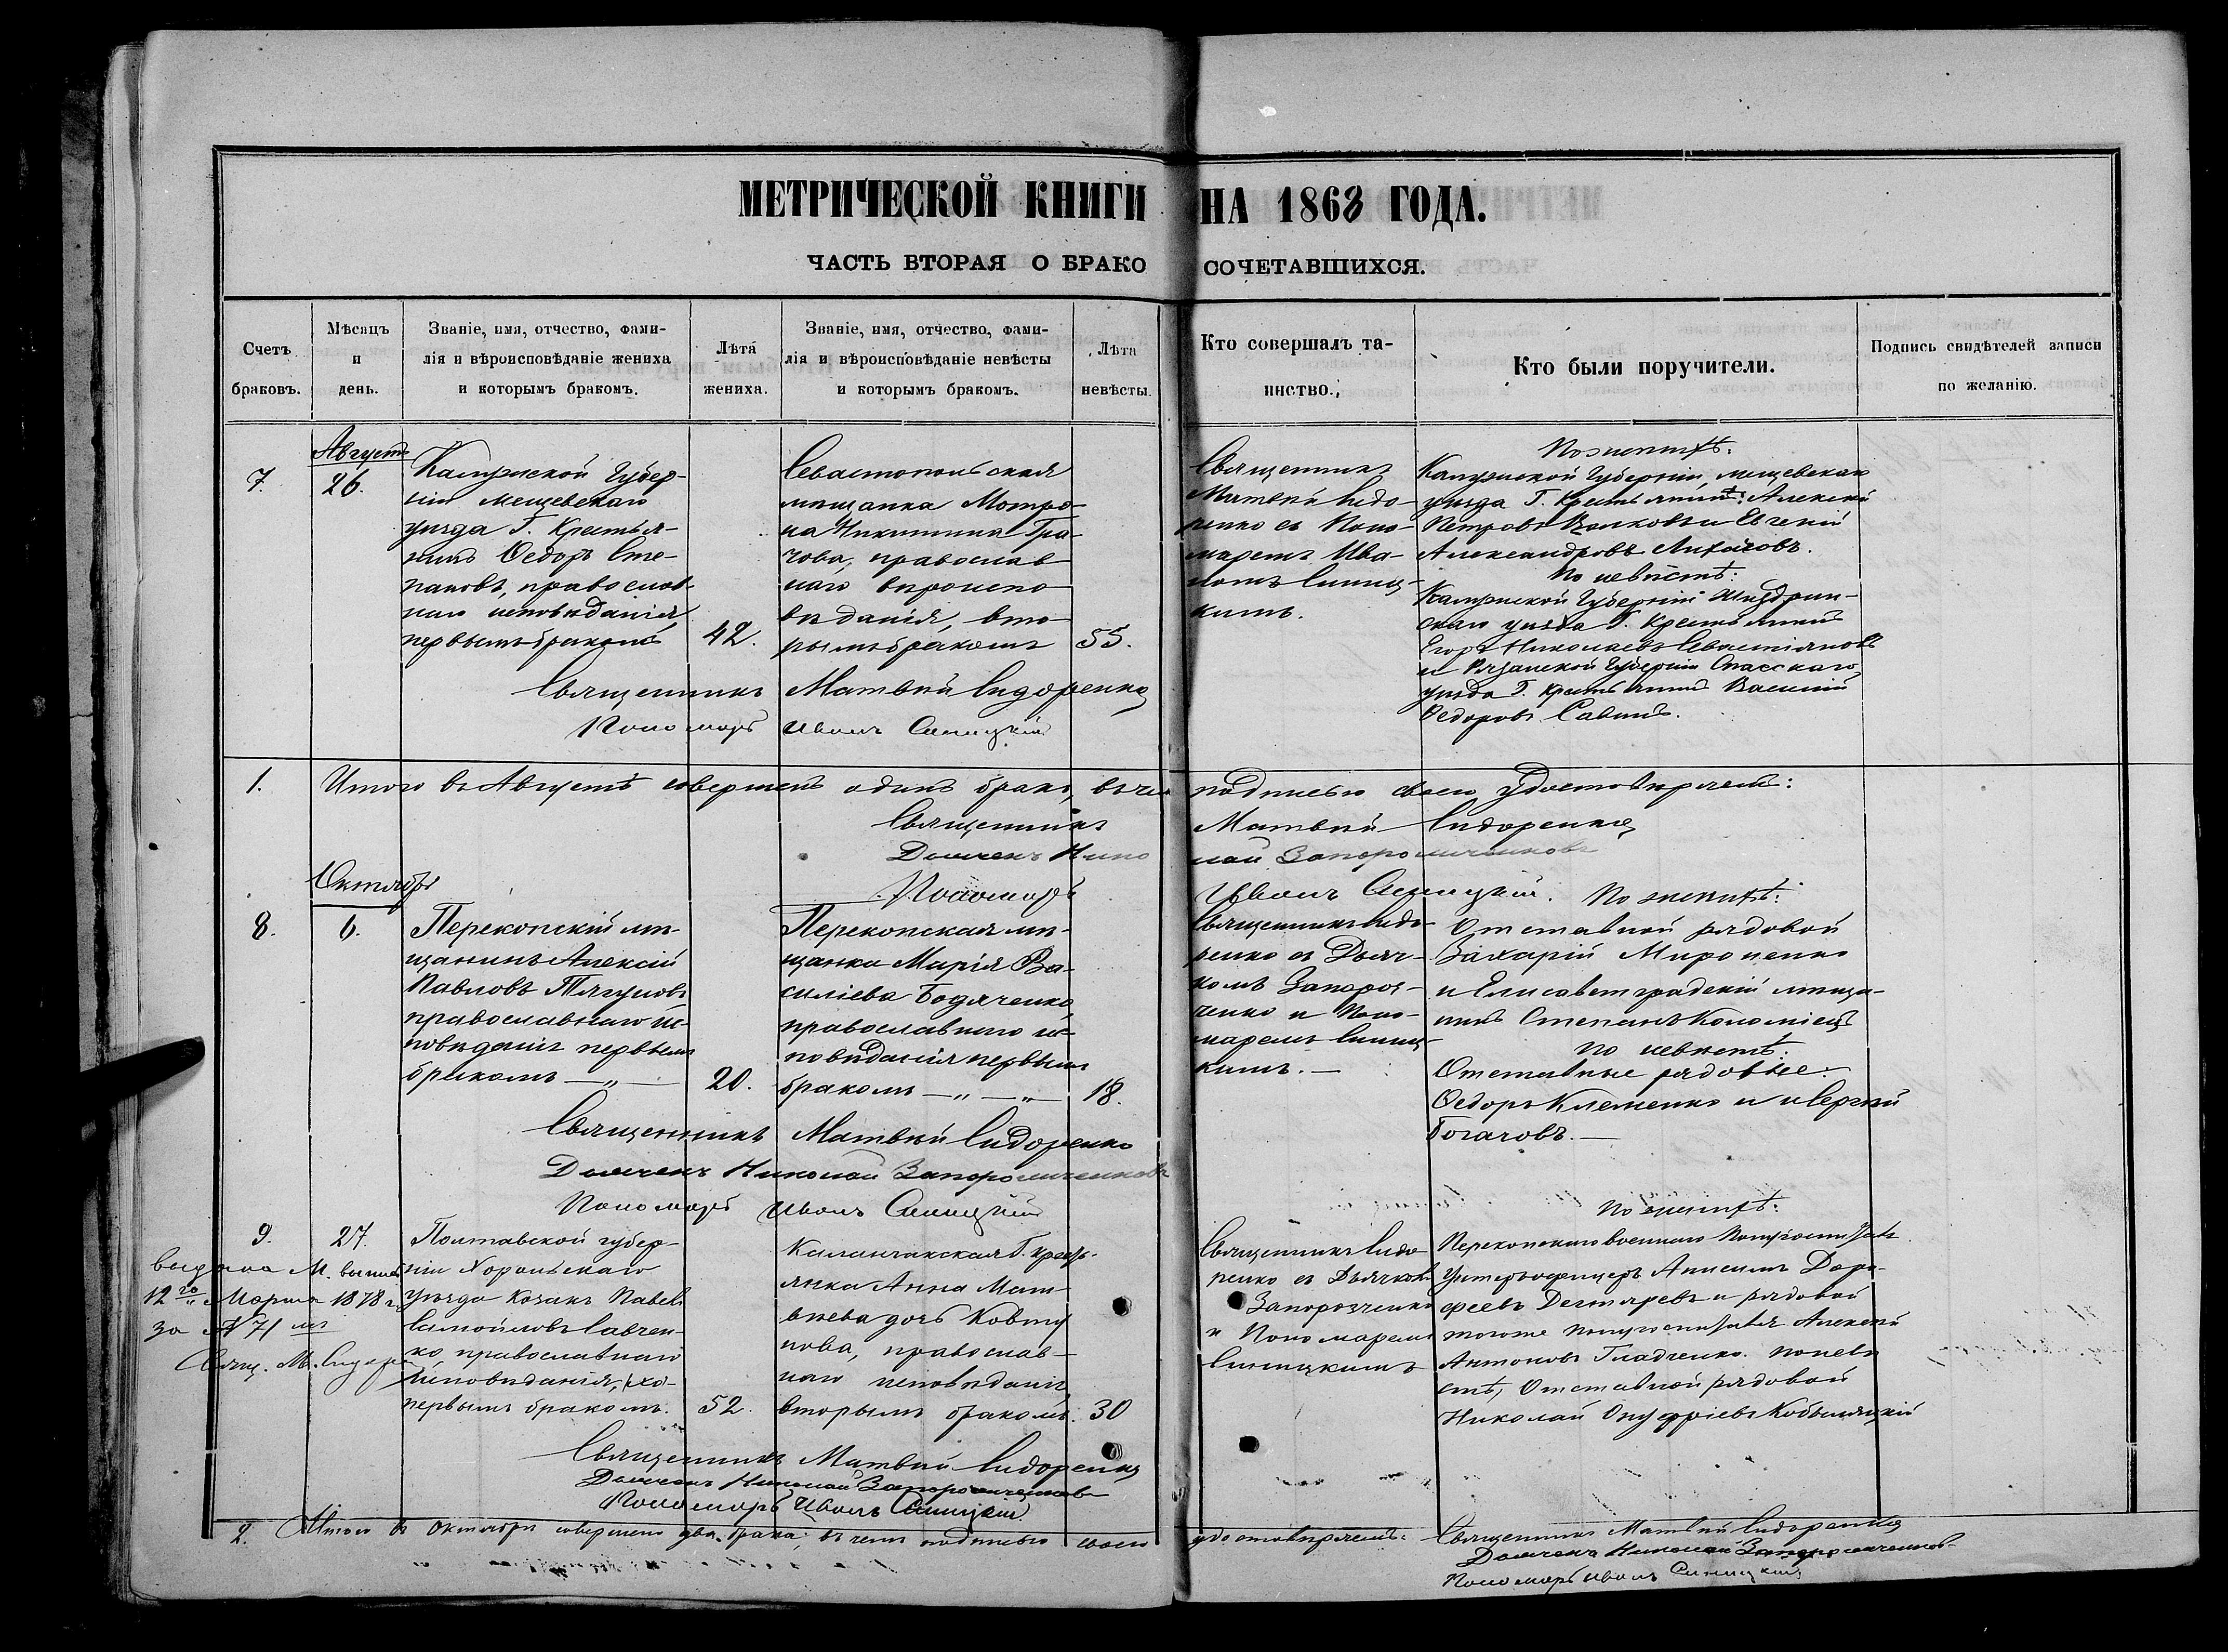 МЕТРИЧЕСКОЙ КНИГИ НА 1868 ГОДА.
ЧАСТЬ ВТОРАЯ О БРАКОСОЧЕТАВШИХСЯ.
Счетъ браковъ.
Мѣсяцъ и день.
Званіе, имя, отчество, фами-
лія и вѣроисповѣданіе жениха
и которымъ бракомъ.
Лѣта жениха.
Званіе, имя, отчество, фами-
лія и вѣроисповѣданіе невѣсты
и которымъ бракомъ.
Лѣта невѣсты.
Кто совершалъ та-
инство.
Кто были поручители.
Подпись свидѣтелей записи
по желанію.
7.
Августъ
26.
Калужской Губер-
ніи Мещевскаго
уѣзда Г. Крестья-
нинъ Ѳедоръ Сте-
пановъ, православ-
наго исповѣданія,
первымъ бракомъ
42.
Севастопольская
мѣщанка Матро-
на Никитина Гра-
чова, православ
наго вѣроиспо
вѣданія, вто-
рымъ бракомъ
55.
Священникъ
Матвѣй Сидо-
ренко съ Поно-
маремъ Ива-
номъ Синиц-
кимъ.
По женихѣ:
Калужской Губерніи, Мещевскаго
уѣзда Г. Крестьянинъ: Алексѣй
Петровъ Волковъ и Евгеній
Александровъ Лихачовъ.
По невѣстѣ:
Калужской Губерніи Жиздрин-
скаго уѣзда Г. Крестьянинъ
Егоръ Николаевъ Севастіяновъ
и Рязанской Губерніи Спасскаго
уѣзда Г. Крестьянинъ Василій
Ѳедоровъ Савинъ.
Священникъ Матвѣй Сидоренко
Пономарь Иванъ Синицкій
1. Итого въ Августѣ совершенъ одинъ бракъ, въ чемъ подписью своею удостовѣряемъ:
Священникъ Матвѣй Сидоренко
Дьячекъ Николай Запорожченковъ
Пономарь Иванъ Синицкій.
8.
Октябрь
6.
Перекопскій мѣ-
щанинъ Алексій
Павловъ Тягуновъ
православнаго ис-
повѣданія первымъ
бракомъ — " —
20.
Перекопская мѣ-
щанка Марія Ва-
силіева Бодяченко,
православнаго ис-
повѣданія первымъ
бракомъ — " — "
18.
Священникъ Сидо-
ренко съ Дьяч-
комъ Запорож-
ченко и Поно-
маремъ Синиц-
кимъ. —
По женихѣ:
Отставной рядовой
Захарій Мироненко
и Елисаветградскій мѣща-
нинъ Степанъ Коломіецъ
По невѣстѣ:
Отставные рядовые:
Ѳедоръ Клеменко и Сергѣй
Богачовъ. —
Священникъ Матвѣй Сидоренко
Дьячекъ Николай Запорожченковъ
Пономарь Иванъ Синицкій
9.
27.
Полтавской губер-
ніи Хорольскаго
уѣзда Козакъ Павелъ
Самойловъ Савчен-
ко, православнаго
исповѣданія,
первымъ бракомъ.
52.
Каланчакская Г. Кресть-
янка Анна Мат-
вѣева дочь Ковту
нова, православ-
наго исповѣданія
вторымъ бракомъ.
30
Священникъ Сидо
ренко съ Дьячкомъ
Запорозченко
и Пономаремъ
Синицкимъ
По женихѣ:
Перекопскаго военнаго Полугоспиталя
Унтеръ-офицеръ Анисимъ Доро-
феевъ Дегтяревъ и рядовой
тогоже полугоспиталя Алексѣй
Антоновъ Гладченко. По невѣ
стѣ, Отставной рядовой
Николай Онуфріевъ Кобыляцкій
выдана М. выпись
12го Марта 1878 г.
за № 71 мъ
Свящ. М. Сидоренко
Священникъ Матвѣй Сидоренко
Дьячекъ Николай Запорожченковъ
Пономарь Иванъ Синицкій
2. Итого въ Октябрѣ совершено два брака, въ чемъ подписью своею удостовѣряемъ: Священникъ Матвѣй Сидоренко
Дьячекъ Николай Запорожченковъ
Пономарь Иванъ Синицкій